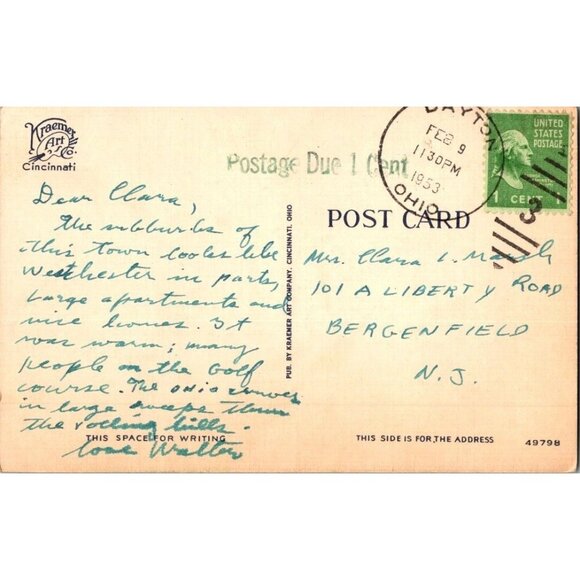 Kraemer
Art
Co.
Cincinnati
Postage Due 1 Cent
DAYTON
FEB 9
1130PM
1953
OHIO
UNITED
STATES
POSTAGE
1 CENT
3
Dear Clara,
The subburbs of
this town looks like
Westchester in parts,
large apartments and
nice homes. It
was warm; many
people on the golf
course. The Ohio
in large sweeps down
the rolling hills.
Love Walter
PUB. BY KRAEMER ART COMPANY, CINCINNATI, OHIO
POST CARD
Mrs. Clara L. Marsh
101 A LIBERTY ROAD
BERGENFIELD
N.J.
THIS SPACE FOR WRITING
THIS SIDE IS FOR THE ADDRESS
49798